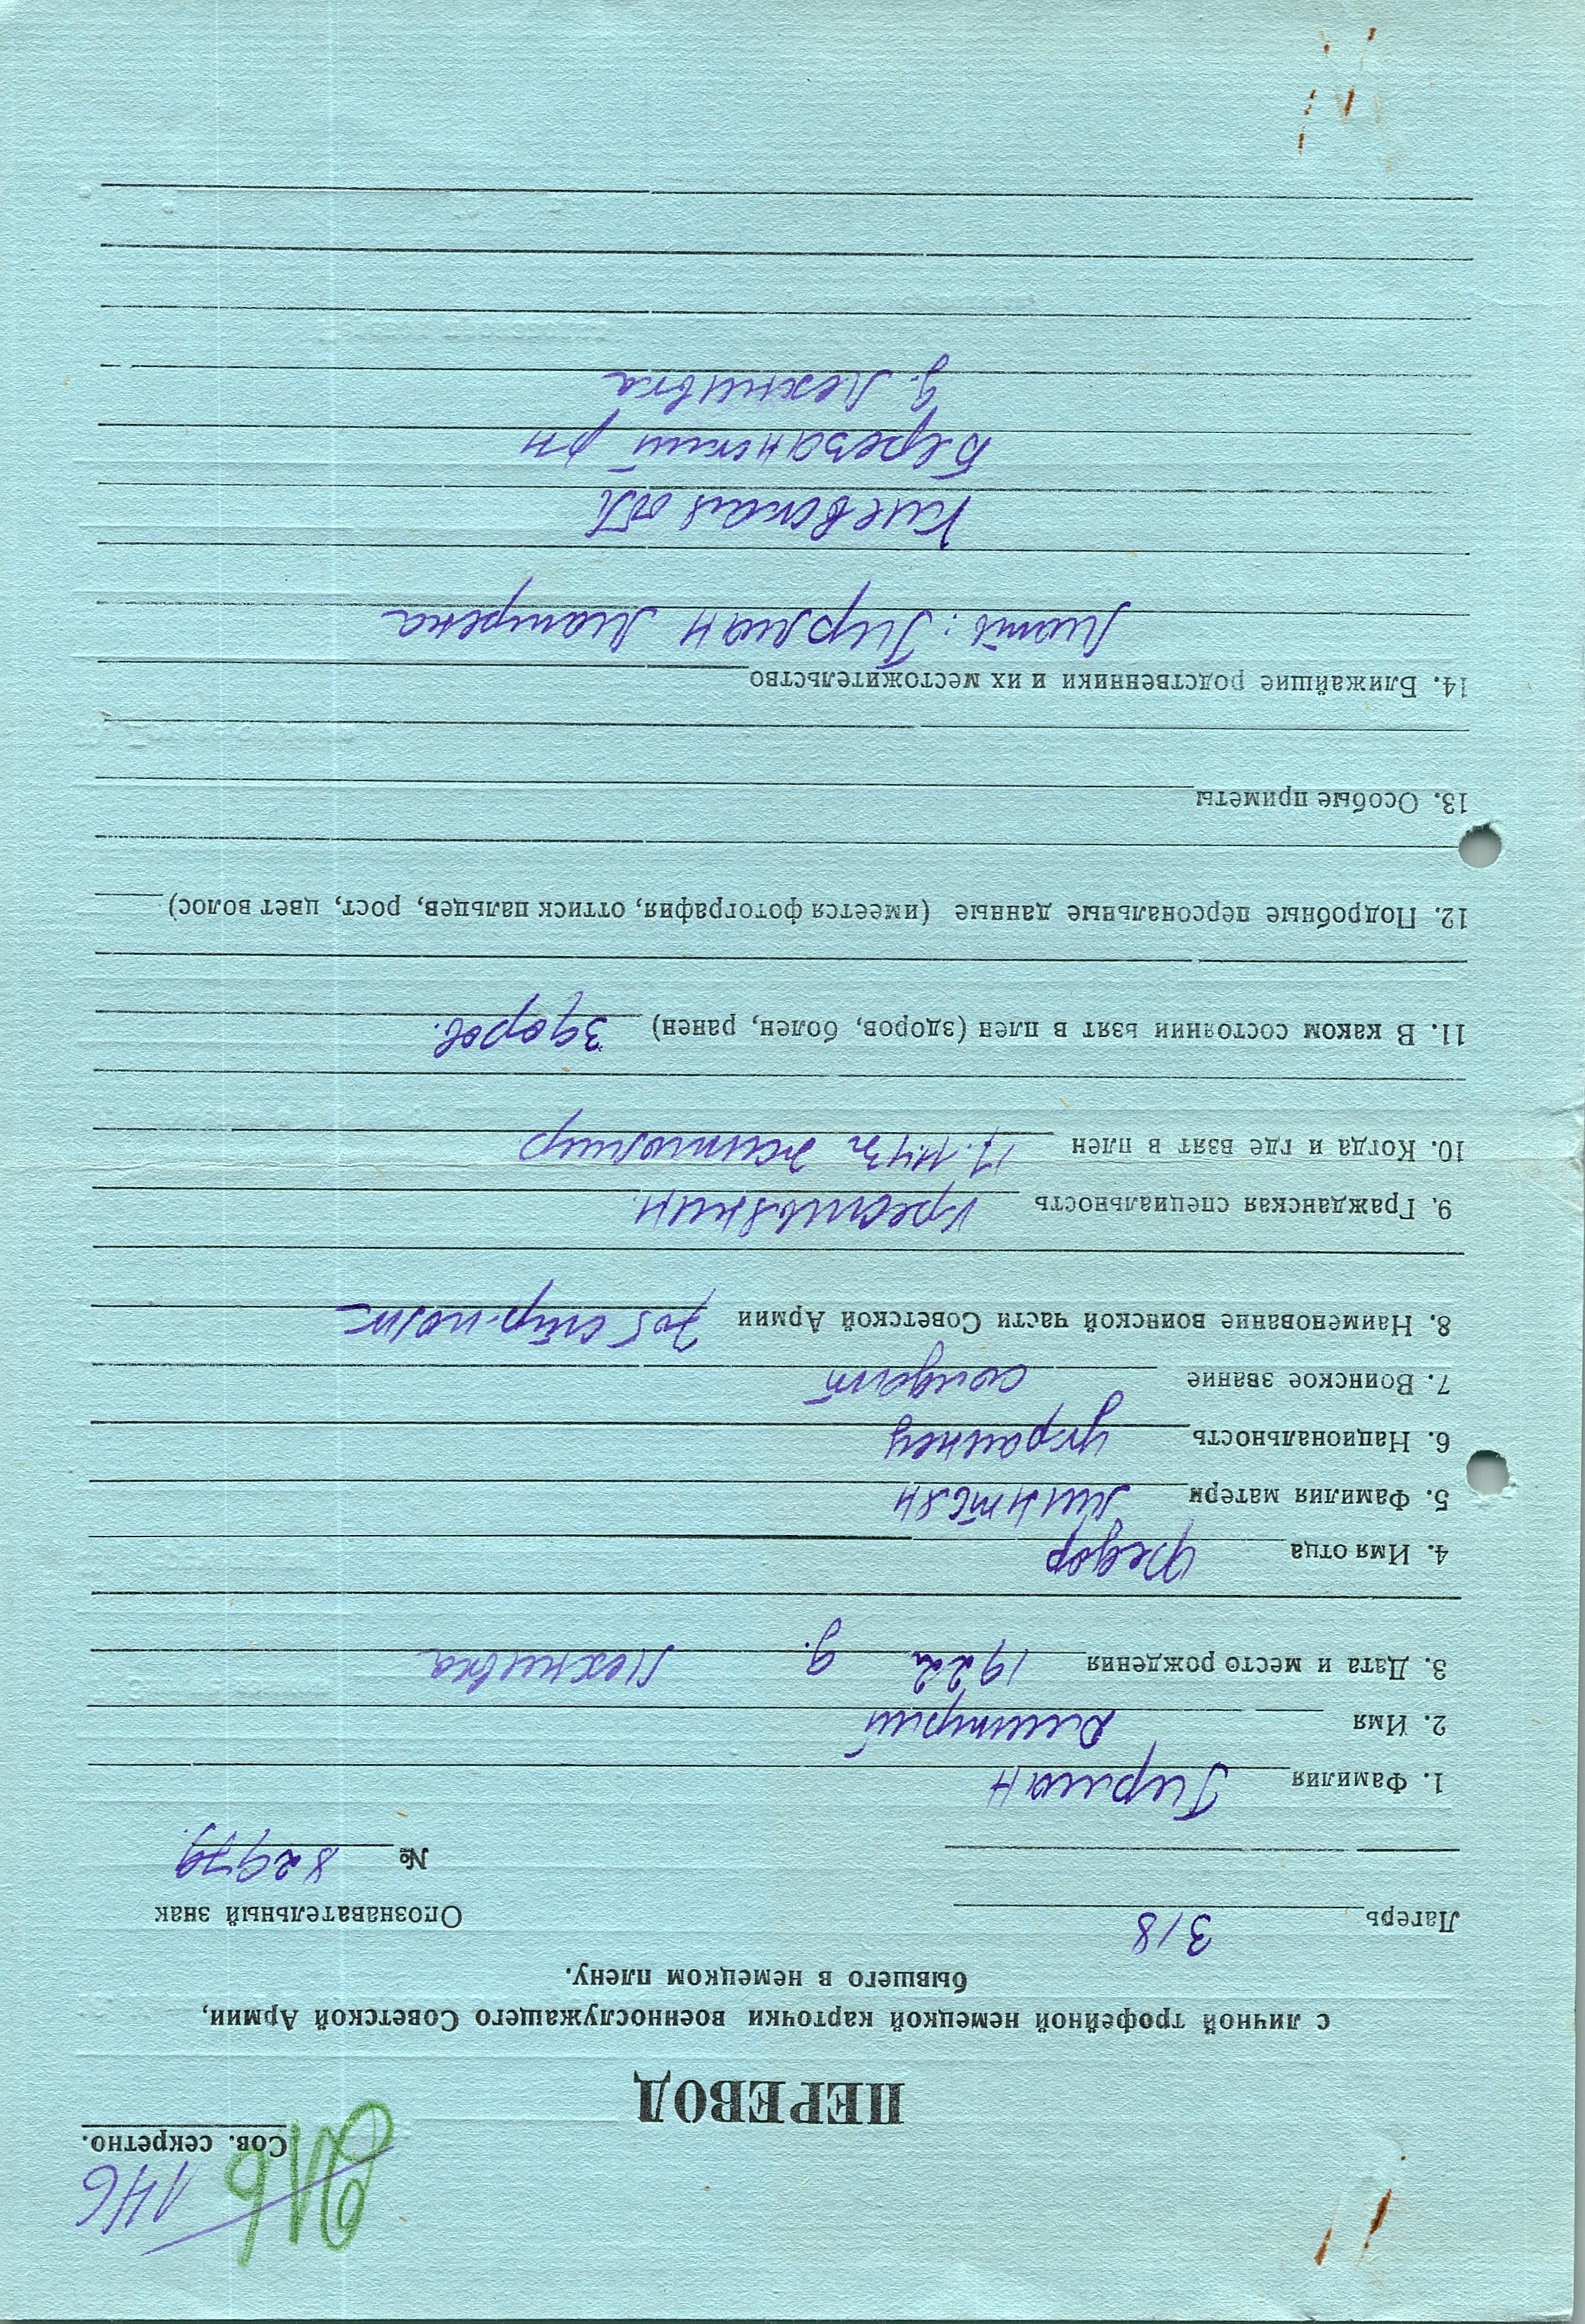 146
Сов. секретно.
ПЕРЕВОД
с личной трофейной немецкой карточки военнослужащего Советской Армии,
бывшего в немецком плену.
Лагерь 318 Опознавательный знак
№ 82979.
1. Фамилия Гирман
2. Имя Дмитрий
3. Дата и место рождения 1922 д. Лехнивка
4. Имя отца Федор
5. Фамилия матери
6. Национальность украинец
7. Воинское звание солдат
8. Наименование воинской части Советской Армии 705 стр. полк
9. Гражданская специальность крестьянин.
10. Когда и где взят в плен Житомир
11. В каком состоянии взят в плен (здоров, болен, ранен) здоров.
12. Подробные персональные данные (имеется фотография, оттиск пальцев, рост, цвет волос)
13. Особые приметы
14. Ближайшие родственники и их местожительство
Мать: Гирман Матрена
Киевская обл
Березанский рн
д. Лехнивка